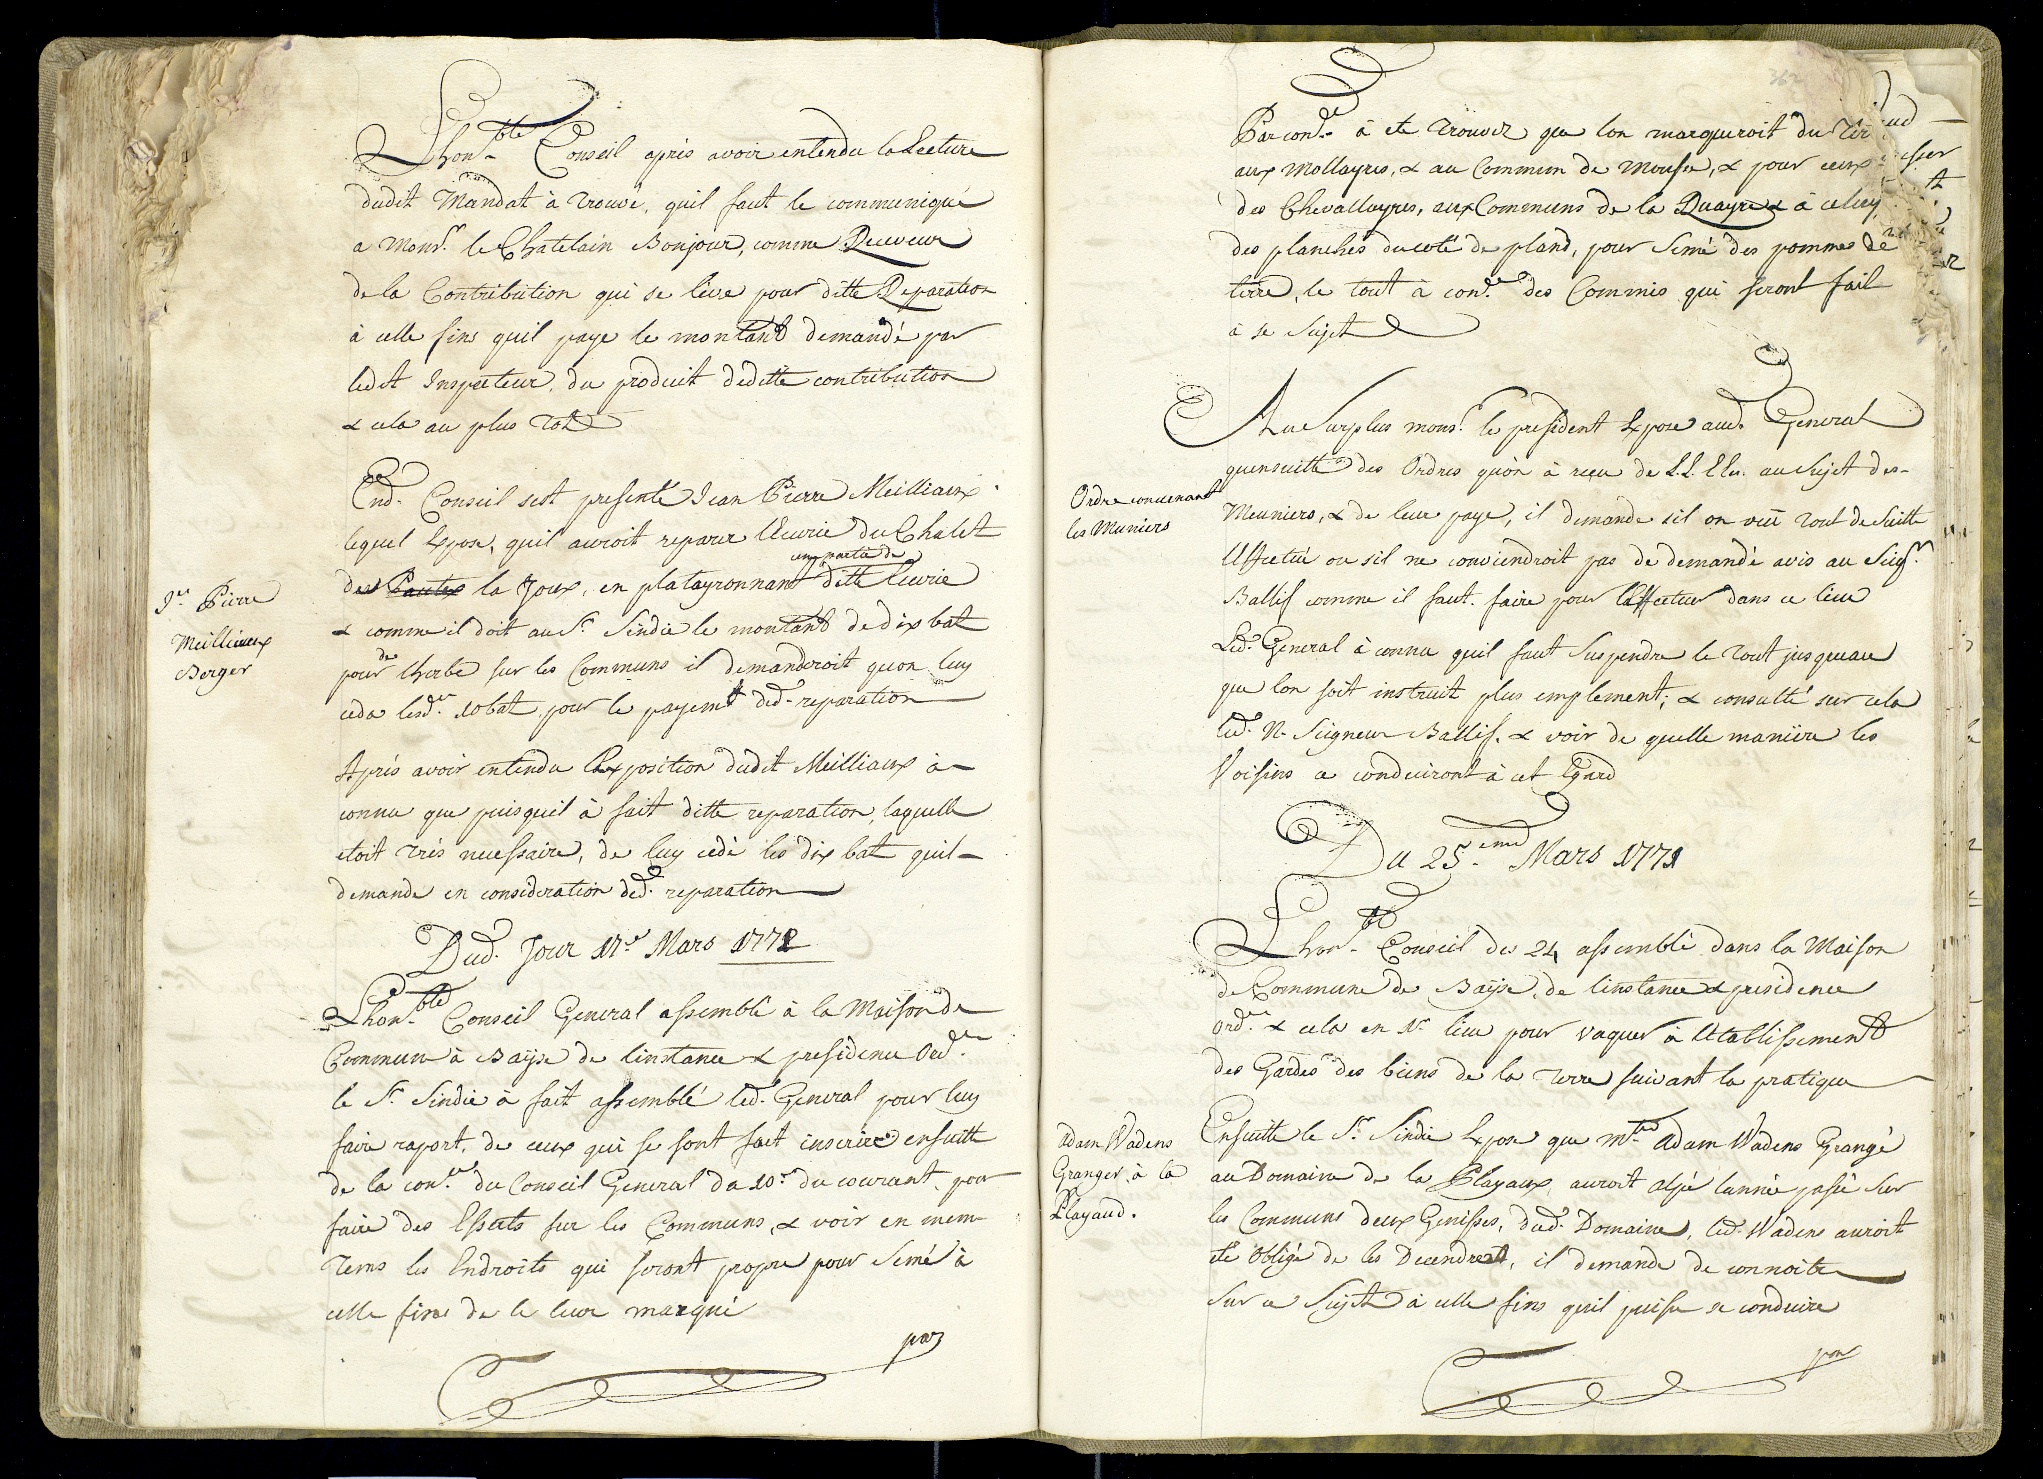 Lhon.ble Conseil après avoir entendu la Lecture
dudit Mandat à trouvé, quil faut le communiqué
a Mons.r le Chatelain Bonjour, comme Receveur
de la Contribution qui se lève pour ditte Reparation
à celle fins quil paye le montant demandé par
ledit Inspecteur, du produit deditte contribution
& cela au plus tot
End. Conseil sest presenté Jean Pierre Meilliaux
lequel Expose, quil auroit reparer lEcurie du Chalet
J.n Pierre
Meilliaux
Berger
une partie de
des Pautex la Joux, en platayronnant ditte Ecurie
& comme il doit au S.r Sindic le montant de dix bat
pour de lherbe sur les Communs il demanderoit quon luy
ceda lesd. 10 bat. pour le payemt ded. reparation
Après avoir entendu lexposition dudit Meilliaux à
connu que puisquil à fait ditte reparation, laquelle
etoit très necessaire, de luy cedé les dix bat quil
demande en consideration ded. reparation
Dud. Jour 11.e Mars 1772
Lhon.ble Conseil General assemblé à la Maison de
Commune à Baÿse de linstance & presidence Ord.re
le S.r Sindic à fait assemblé led. General pour luy
faire raport, de ceux qui se sont fait inscrire ensuitte
de la con.ce du Conseil General du 10.e du courant, pour
faire des Esserts sur les Communs, & voir en mem
tems les Endroits qui seront propre pour Semé à
celle fins de le leur marqué
par
362
Par con.ce à ete trouver que lon marqueroit du
aux Mollayres, & au Commun de Mouse, & pour ceux
des Chevalleyres, aux Communs de la Quayre & à celuy
des planches du coté de pland, pour Semé des pommes de
terre, le tout à con.ce des Commis qui seront fait
à se Sujet
Au Surplus mons.r le president Expose aud. General
quensuitte des Ordres quòn à reçu de LL. EEes. au Sujet des
Ordre concernant
les Muniers
Meuniers, & de leur paye, il demande sil on veut tout de Suitte
Effectué ou sil ne conviendroit pas de demandé avis au Seig.r
Ballif comme il faut faire pour lEffectuer dans ce lieu
Led. General à connu quil faut Suspendre le tout jusqueau
que lon soit instruit plus emplement; & consulté sur cela
led. N. Seigneur Ballif. & voir de quelle manière les
Voisins ce conduiront à cet Egard
Du 25.eme Mars 1771
Lhon.ble Conseil des 24 assemblé dans la Maison
de Commune de Baÿse, de linstance & presidence
ord.re & cela en 1.er lieu pour vaquer à lEtablissement
des Gardes des biens de la terre suivant la pratique
Adam Wadens
Granger à la
Playaud.
Ensuitte le S.r Sindic Expose que M.tre Adam Wadens Grangé
au Domaine de la Playaux, auroit alpé lannée passé Sur
les Communs deux Genisses, dud. Domaine, led. Wadens auroit
été Obligé de les Decendre, il demande de connoitre
sur ce Sujet à celle fins quil puisse se conduire
par